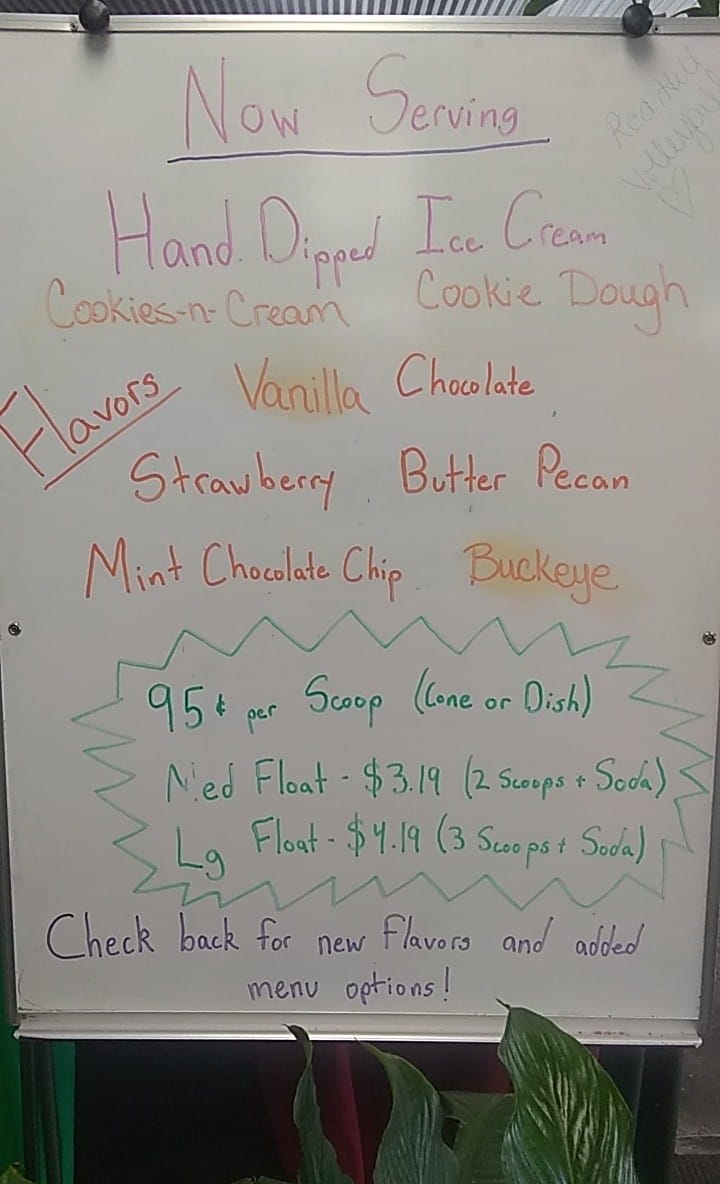 Now Serving
Volleyball
Hand Dipped Ice Cream
Cookies-n-Cream Cookie Dough
Flavors
Vanilla Chocolate
Strawberry Butter Pecan
Mint Chocolate Chip Buckeye
95¢ per Scoop (Cone or Dish)
Med Float - $3.19 (2 Scoops + Soda)
Lg Float - $4.19 (3 Scoops + Soda)
Check back for new Flavors and added
menu options!